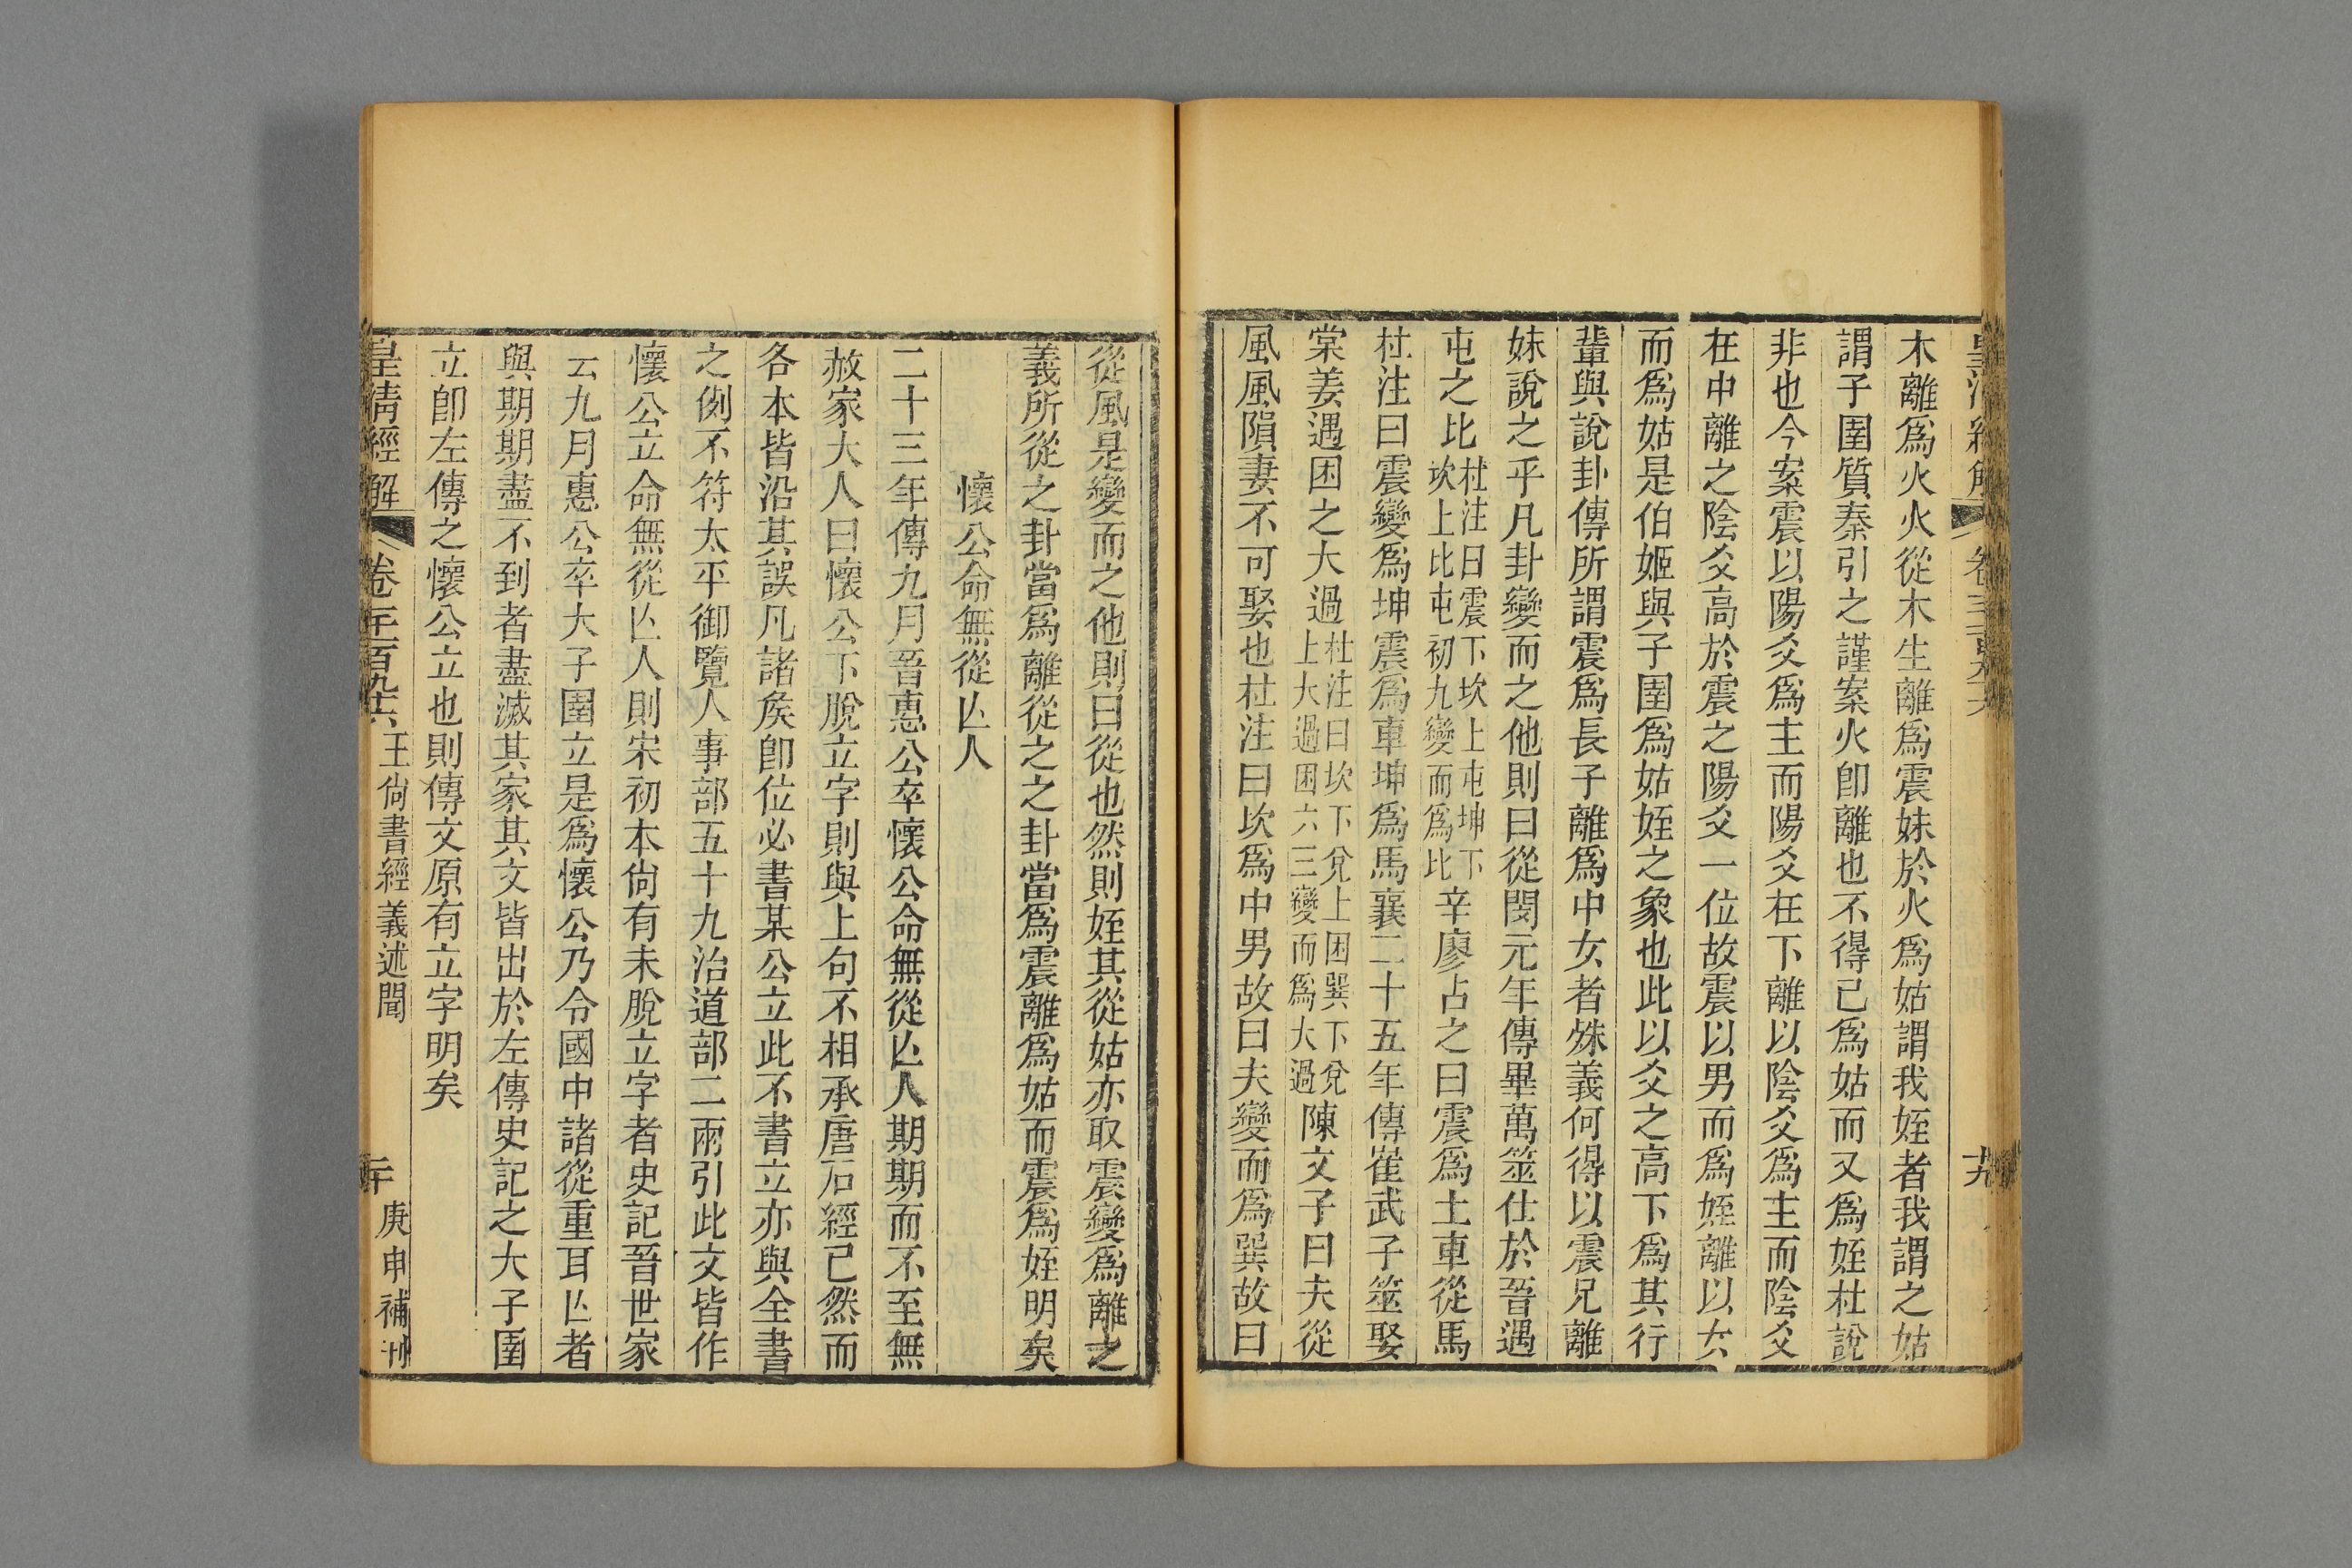 木離爲火火從木生離爲震妹於火爲姑謂我姪者我謂之姑
謂子圉質秦引之謹案火卽離也不得已爲姑而又爲姪杜說
非也今案震以陽爻爲主而陽爻在下離以陰爻爲主而陰爻
在中離之陰爻高於震之陽爻一位故震以男而爲姪離以女
而爲姑是伯姬與子圉爲姑姪之象也此以爻之高下爲其行
輩與說卦傳所謂震爲長子離爲中女者殊義何得以震兄離
妹說之乎凡卦變而之他則曰從閔元年傳畢萬筮仕於晉遇
屯之比杜注曰震下坎上屯坤下坎上比屯初九變而爲比辛廖占之曰震爲土車從馬
杜注曰震變爲坤震爲車坤爲馬襄二十五年傳崔武子筮娶
棠姜遇困之大過杜注曰坎下兌上困巽下兌上大過困六三變而爲大過陳文子曰夫從
風風隕妻不可娶也杜注曰坎爲中男故曰夫變而爲巽故曰
從風是變而之他則曰從也然則姪其從姑亦取震變爲離之
義所從之卦當爲離從之之卦當爲震離爲姑而震爲姪明矣
懷公命無從亾人
二十三年傳九月晉惠公卒懷公命無從亾人期期而不至無
赦家大人曰懷公下脫立字則與上句不相承唐石經已然而
各本皆沿其誤凡諸矦卽位必書某公立此不書立亦與全書
之例不符太平御覽人事部五十九治道部二兩引此文皆作
懷公立命無從亾人則宋初本尙有未脫立字者史記晉世家
云九月惠公卒大子圉立是爲懷公乃令國中諸從重耳亾者
與期期盡不到者盡滅其家其文皆出於左傳史記之大子圉
立卽左傳之懷公立也則傳文原有立字明矣
皇清經解 卷 王尙書經義述聞 庚申補刊